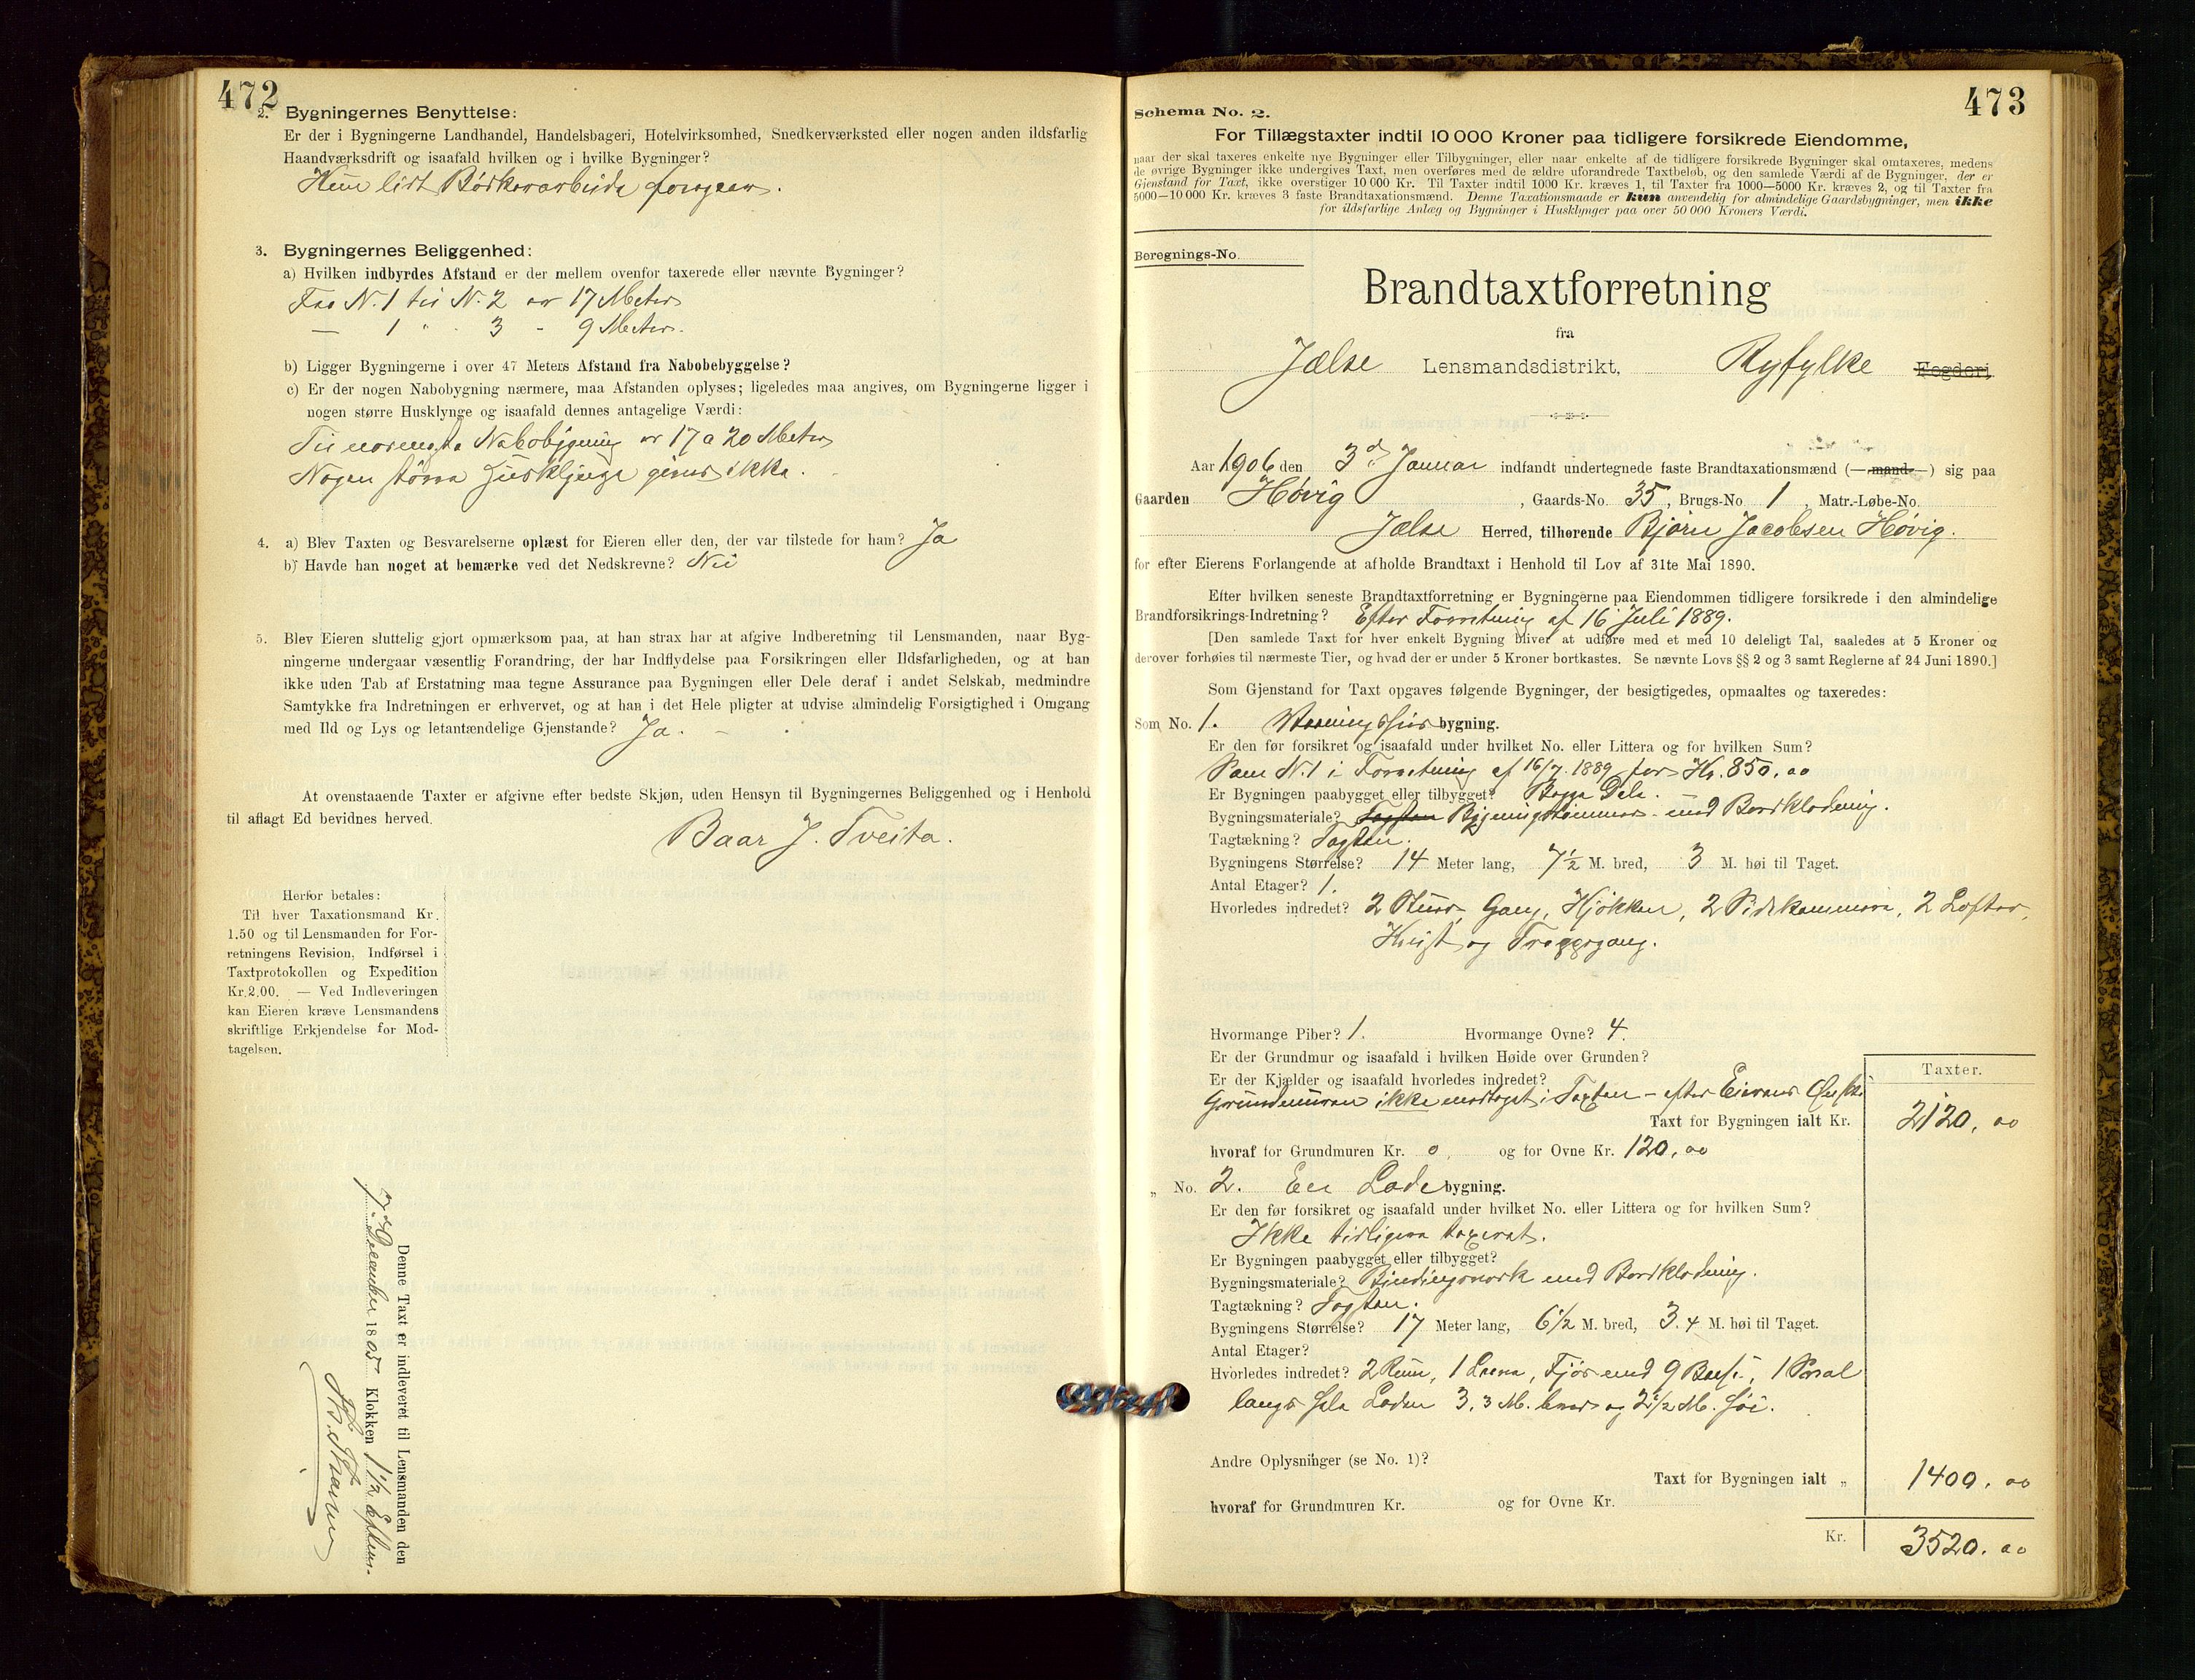 472
2. Bygningernes Benyttelse:
Er der i Bygningerne Landhandel, Handelsbageri, Hotelvirksomhed, Snedkerværksted eller nogen anden ildsfarlig
Haandværksdrift og isaafald hvilken og i hvilke Bygninger?
Kun lidt Bødkerarbeide foregaar.
3. Bygningernes Beliggenhed:
a) Hvilken indbyrdes Afstand er der mellem ovenfor taxerede eller nævnte Bygninger?
Fra N. 1 til N. 2 er 17 Meter
— 1 " 3 - 9 Meter.
b) Ligger Bygningerne i over 47 Meters Afstand fra Nabobebyggelse?
c) Er der nogen Nabobygning nærmere, maa Afstanden oplyses; ligeledes maa angives, om Bygningerne ligger i
nogen større Husklynge og isaafald dennes antagelige Værdi:
Til nærmeste Nabobygning er 17 a 20 Meter
Nogen større Husklynge gives ikke.
4. a) Blev Taxten og Besvarelserne oplæst for Eieren eller den, der var tilstede for ham? Ja
b) Havde han noget at bemærke ved det Nedskrevne? Nei
5. Blev Eieren sluttelig gjort opmærksom paa, at han strax har at afgive Indberetning til Lensmanden, naar Byg-
ningerne undergaar væsentlig Forandring, der har Indflydelse paa Forsikringen eller Ildsfarligheden, og at han
ikke uden Tab af Erstatning maa tegne Assurance paa Bygningen eller Dele deraf i andet Selskab, medmindre
Samtykke fra Indretningen er erhvervet, og at han i det Hele pligter at udvise almindelig Forsigtighed i Omgang
med Ild og Lys og letantændelige Gjenstande? Ja. -
At ovenstaaende Taxter er afgivne efter bedste Skjøn, uden Hensyn til Bygningernes Beliggenhed og i Henhold
til aflagt Ed bevidnes herved.
Baar J. Tveita.
Herfor betales:
Til hver Taxationsmand Kr.
1.50 og til Lensmanden for For-
retningens Revision, Indførsel i
Taxtprotokollen og Expedition
Kr. 2.00. — Ved Indleveringen
kan Eieren kræve Lensmandens
skriftlige Erkjendelse for Mod-
tagelsen.
Denne Taxt er indleveret til Lensmanden den
7de December 1805 Klokken 1 1/2 Efterm.
473
Schema No. 2.
For Tillægstaxter indtil 10 000 Kroner paa tidligere forsikrede Eiendomme,
naar der skal taxeres enkelte nye Bygninger eller Tilbygninger, eller naar enkelte af de tidligere forsikrede Bygninger skal omtaxeres, medens
de øvrige Bygninger ikke undergives Taxt, men overføres med de ældre uforandrede Taxtbeløb, og den samlede Værdi af de Bygninger, der er
Gjenstand for Taxt, ikke overstiger 10 000 Kr. Til Taxter indtil 1000 Kr. kræves 1, til Taxter fra 1000—5000 Kr. kræves 2, og til Taxter fra
5000—10 000 Kr. kræves 3 faste Brandtaxationsmænd. Denne Taxationsmaade er kun anvendelig for almindelige Gaardsbygninger, men ikke
for ildsfarlige Anlæg og Bygninger i Husklynger paa over 50 000 Kroners Værdi.
Beregnings-No.
Brandtaxtforretning
fra
Jælse Lensmandsdistrikt, Ryfylke Fogderi
Aar 1906 den 3d Januar indfandt undertegnede faste Brandtaxationsmænd (—mand—) sig paa
Gaarden Høvig, Gaards-No. 35, Brugs-No. 1, Matr.-Løbe-No.
Jælse Herred, tilhørende Bjørn Jacobsen Høvig.
for efter Eierens Forlangende at afholde Brandtaxt i Henhold til Lov af 31te Mai 1890.
Efter hvilken seneste Brandtaxtforretning er Bygningerne paa Eiendommen tidligere forsikrede i den almindelige
Brandforsikrings-Indretning? Efter Forretning af 16 Juli 1889.
[Den samlede Taxt for hver enkelt Bygning bliver at udføre med et med 10 deleligt Tal, saaledes at 5 Kroner og
derover forhøies til nærmeste Tier, og hvad der er under 5 Kroner bortkastes. Se nævnte Lovs §§ 2 og 3 samt Reglerne af 24 Juni 1890.]
Som Gjenstand for Taxt opgaves følgende Bygninger, der besigtigedes, opmaaltes og taxeredes:
Som No. 1. Vaaningshusbygning.
Er den før forsikret og isaafald under hvilket No. eller Littera og for hvilken Sum?
Som N. 1 i Forretning af 16/7. 1889 for Kr. 850.00
Er Bygningen paabygget eller tilbygget? Begge Dele.
Bygningsmateriale? Tagsten Bygningstømmer med Bordklædning.
Tagtækning? Tagsten.
Bygningens Størrelse? 14 Meter lang, 7 1/2 M. bred, 3 M. høi til Taget.
Antal Etager? 1.
Hvorledes indredet? 2 Stuer, Gang, Kjøkken, 2 Sidekammere, 2 Lofter,
Kvist og Trappegang.
Hvormange Piber? 1. Hvormange Ovne? 4.
Er der Grundmur og isaafald i hvilken Høide over Grunden?
Er der Kjælder og isaafald hvorledes indredet?
Grundmuren ikke medtaget i Taxten - efter Eierens Ønske
Taxter.
Taxt for Bygningen ialt Kr. 2120.00
hvoraf for Grundmuren Kr. 0, og for Ovne Kr. 120.00
" No. 2. En Ladebygning.
Er den før forsikret og isaafald under hvilket No. eller Littera og for hvilken Sum?
Ikke tidligere taxeret.
Er Bygningen paabygget eller tilbygget?
Bygningsmateriale? Bindingsværk med Bordklædning.
Tagtækning? Tagsten.
Bygningens Størrelse? 17 Meter lang, 6 1/2 M. bred, 3.4 M. høi til Taget.
Antal Etager?
Hvorledes indredet? 2 Rum, 1 Laave, Fjøs med 9 Baase, 1 Sval
langs hele Laden 3,3 M. bred og 2 1/2 M. høi.
Andre Oplysninger (se No. 1)?
Taxt for Bygningen ialt " 1400.00
hvoraf for Grundmuren Kr. og for Ovne Kr.
Kr. 3520.00